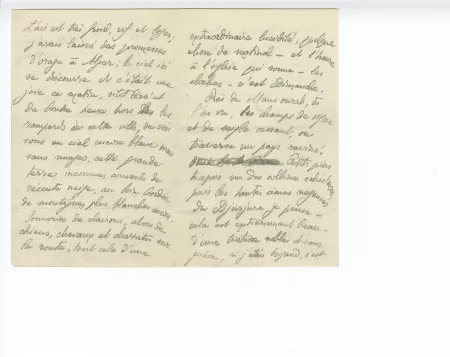 L'air est très froid, vif et léger,
j'avais laissé des promesses
d'orage à Alger ; le ciel ici
se découvre et c'était une
joie ce matin, sitôt levé et
de bonne heure hors les
remparts de cette ville, de voir
sous un ciel encore blanc mais
sans nuages, cette grande
terre inconnue couverte de
récente neige, au loin bordée
de montagnes plus blanches encore.
Sonneries de clairons, abois de
chiens, chevaux et charrettes sur
la route, tout cela d'une
extraordinaire lucidité, quelque
chose de matinal — et l'heure
à l'église qui sonne — les
cloches — c'est Dimanche.
Près de
l'on va, les champs de vigne
et de seigle cessant, on
traverse un pays raviné
Petits prés
drapés sur des collines
puis les hautes cimes neigeuses
du Djurjura je pense —
cela est extrêmement beau,
d'une tristesse noble et sans
grâce ; si j'étais Legrand, c'est